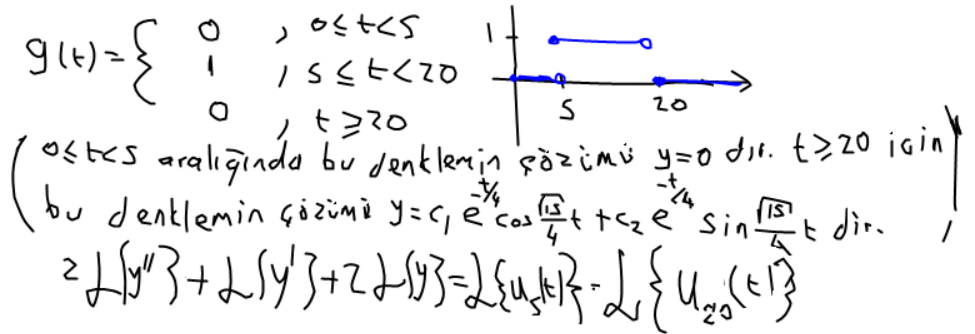 g(t) = { 0 , 0 ≤ t < 5
1 , 5 ≤ t < 20
0 , t ≥ 20
1
5 20
( 0≤t<5 aralığında bu denklemin çözümü y=0 dır. t≥20 için
bu denklemin çözümü y = c₁ e^(-t/4) cos √15/4 t + c₂ e^(-t/4) sin √15/4 t dir. )
2 ℒ{y''} + ℒ{y'} + 2 ℒ{y} = ℒ{u₅(t)} - ℒ{u₂₀(t)}